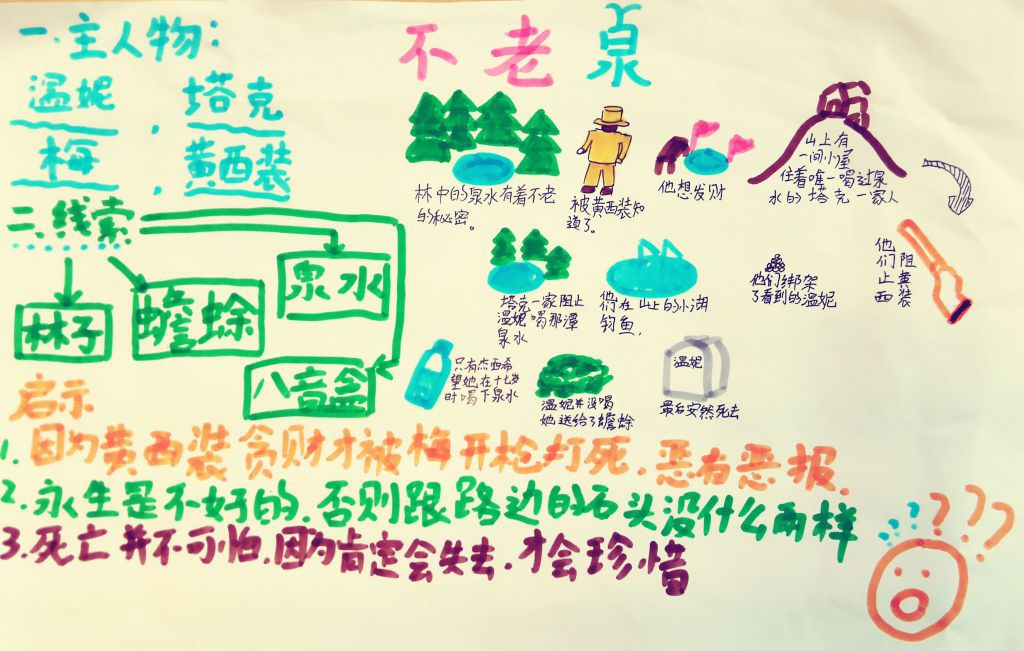 不老泉
一.主人物：
温妮，塔克
梅，黄西装
二.线索
林子
蟾蜍
泉水
八音盒
林中的泉水有着不老
的秘密。
被黄西装知
道了。
他想发财
山上有
一间小屋
住着唯一喝过泉
水的塔克一家人
塔克一家阻止
温妮喝那潭
泉水
他们在山上的小湖
钓鱼，
他们绑架
了看到的温妮
他
们阻
止黄
西装
只有杰西希
望她在十七岁
时喝下泉水
温妮并没喝
她送给了蟾蜍
温妮
最后安然死去
启示
1.因为黄西装贪财才被梅开枪打死.恶有恶报.
2.永生是不好的.否则跟路边的石头没什么两样
3.死亡并不可怕.因为肯定会失去.才会珍惜
???
??